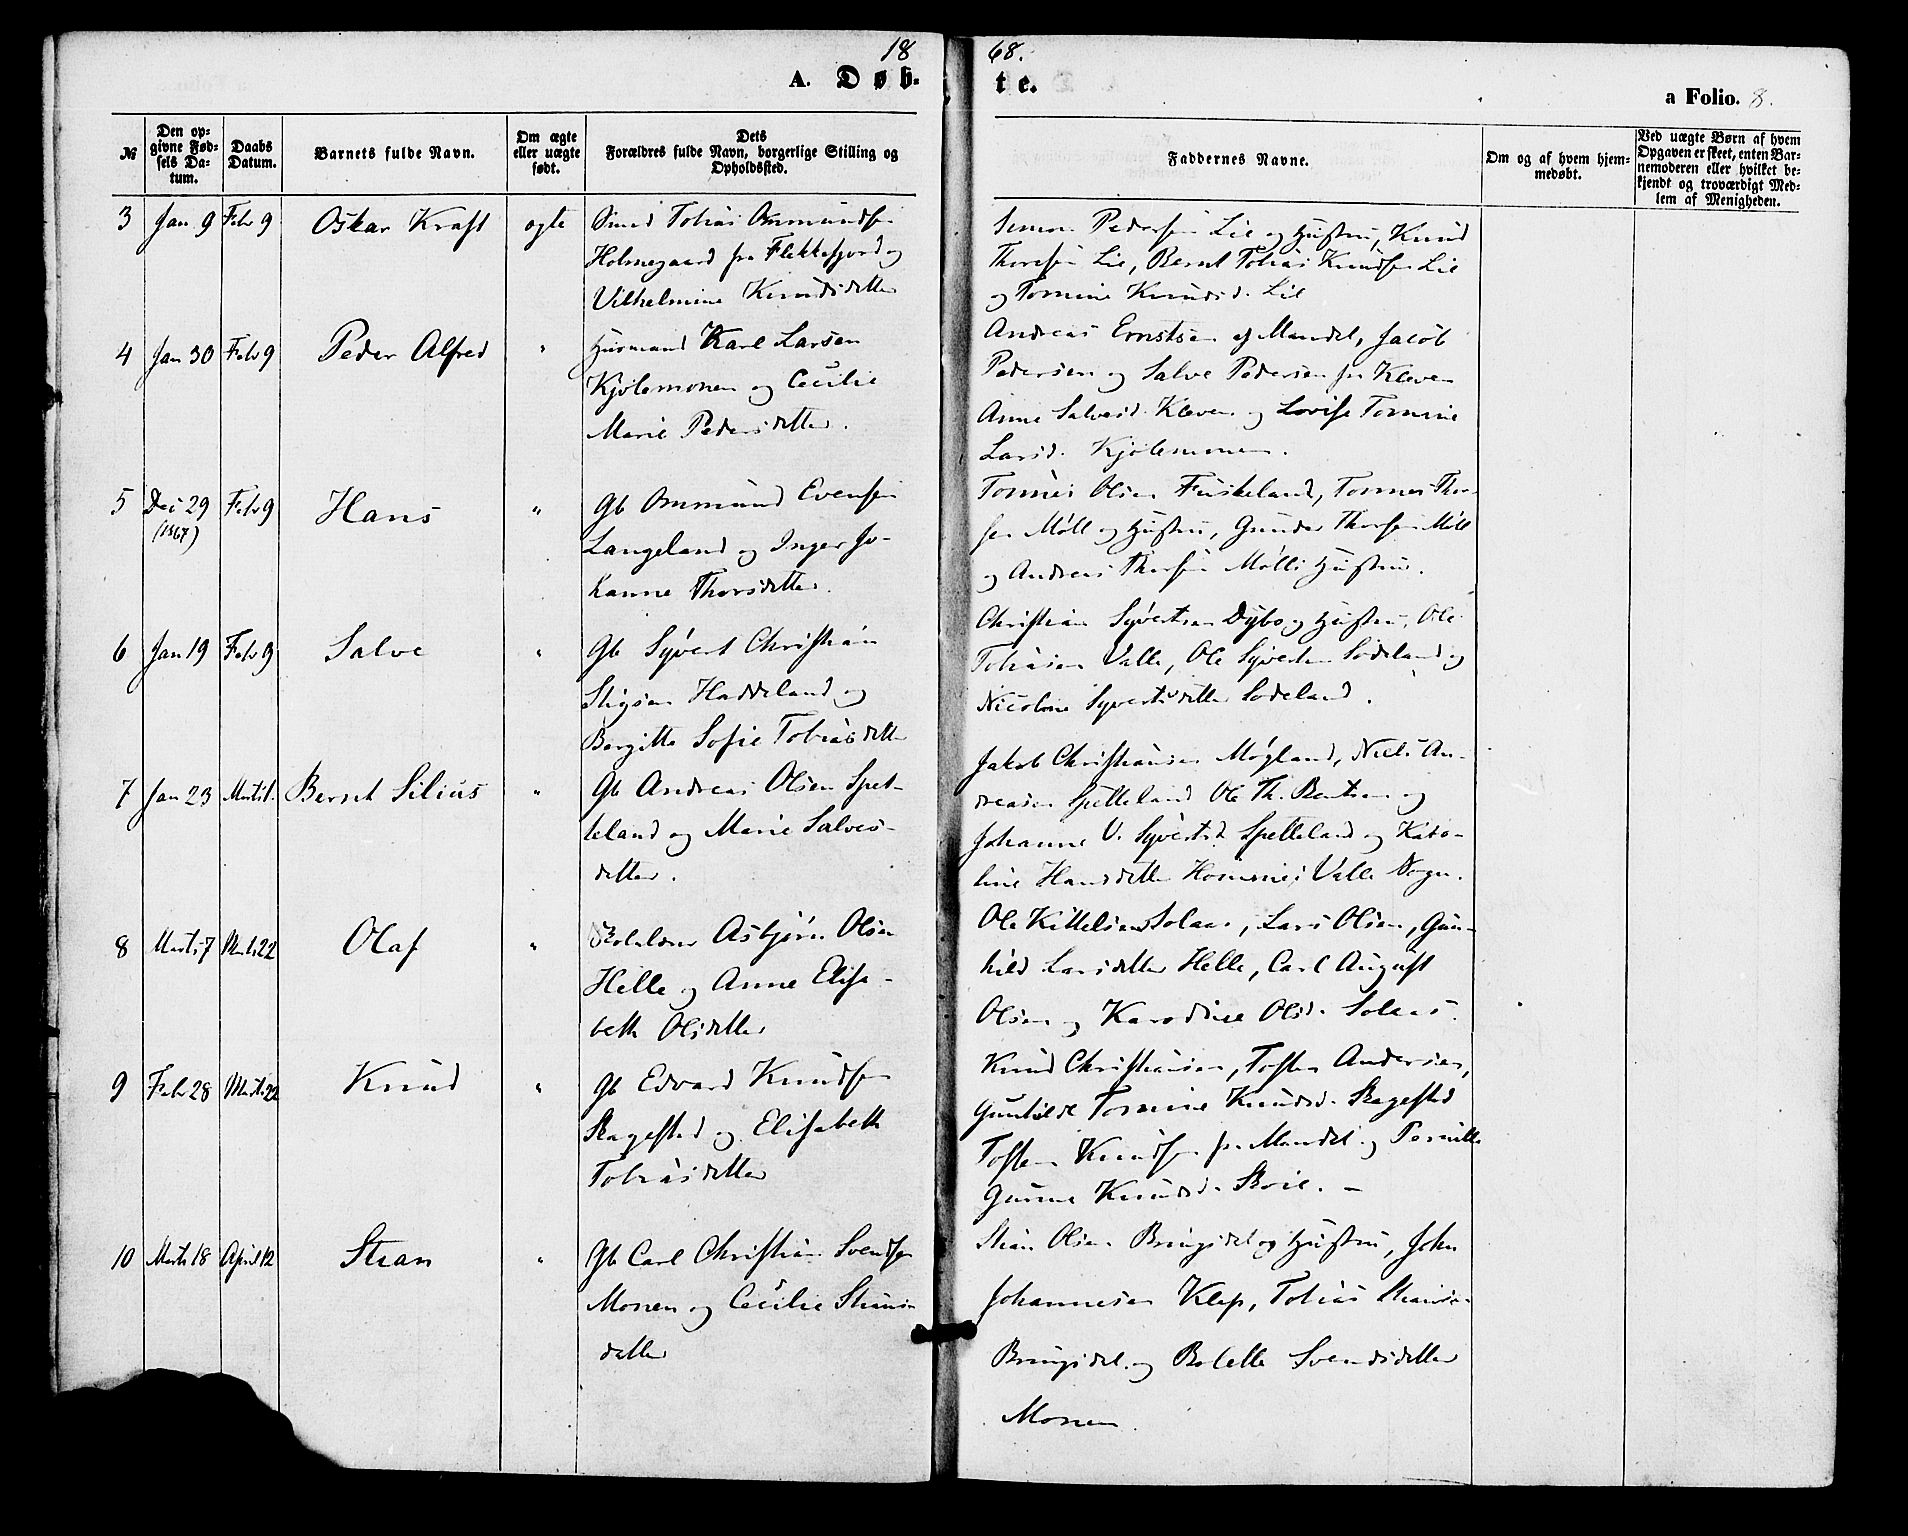 18 68.
A. Døbte.
a Folio. 8.
№
Den opgivne Fødsels Datum.
Daabs Datum.
Barnets fulde Navn.
Om ægte eller uægte født.
Dets Forældres fulde Navn, borgerlige Stilling og Opholdssted.
Faddernes Navne.
Om og af hvem hjemmedøbt.
Ved uægte Børn af hvem Opgaven er skeet, enten Barnemoderen eller hvilket bekjendt og troværdigt Medlem af Menigheden.
3 Jan 9 Febr 9 Oskar Kraft ægte
Smed Tobias Ommundsen
Holmegaard fra Flekkefjord og
Vilhelmine Knudsdatter
Simon Pedersen Lie og Hustru, Knud
Thoresen Lie, Bernt Tobias Knudsen Lie
og Tomine Knudsd. Lie
4 Jan 30 Febr 9 Peder Alfred "
Husmand Karl Larsen
Kjølemonen og Cecilie
Marie Pedersdatter.
Andreas Ernstsen af Mandal, Jacob
Pedersen og Salve Pedersen fra Kleven
Anne Salvesd. Kleven og Lovise Tomine
Larsd. Kjølemonen.
5 Dec 29 (1867) Febr 9 Hans "
Gb Ommund Evensen
Langeland og Inger Jo-
hanne Thorsdatter.
Tønnes Olsen Fuskeland, Tønnes Thor-
sen Møll og Hustru, Gunder Thorsen Møll
og Andreas Thorsen Mølls Hustru.
6 Jan 19 Febr 9 Salve "
Gb Syvert Christian
Stigsen Haddeland og
Bergitte Sofie Tobiasdatter
Christian Syvertsen Dybo og Hustru, Ole
Tobiasen Valle, Ole Syvertsen Sodeland og
Nicoline Syvertsdatter Sodeland.
7 Jan 23 Marts 1. Bernt Silius "
Gb Andreas Olsen Spet-
teland og Marie Salves-
datter.
Jakob Christiansen Møgland, Niels An-
dreasen Spetteland Ole Th. Bentsen og
Johanne V. Syvertsd. Spetteland og Karo-
line Hansdatter Homme i Valle Sogn.
8 Marts 7 Marts 22 Olaf "
Skolelærer Asbjørn Olsen
Helle og Anne Elisa-
beth Olsdatter
Ole Kittelsen Solaas, Lars Olsen, Gun-
hild Larsdatter Helle, Carl August
Olsen og Karodine Olsd. Solaas.
9 Febr 28 Marts 22 Knud "
Gb Edvard Knudsen
Skagested og Elisabeth
Tobiasdatter
Knud Christiansen, Tosten Andersen,
Gunhilde Tomine Knudsd. Skagested
Tosten Knudsen fra Mandal og Pernille
Gurine Knudsd. Skoie. –
10 Marts 18 April 12 Stian "
Gb Carl Christian Svendsen
Monen og Cecilie Stians-
datter
Stian Olsen Bringsdal og Hustru, John
Johannesen Klep, Tobias Stiansen
Bringsdal og Bolette Svendsdatter
Monen.